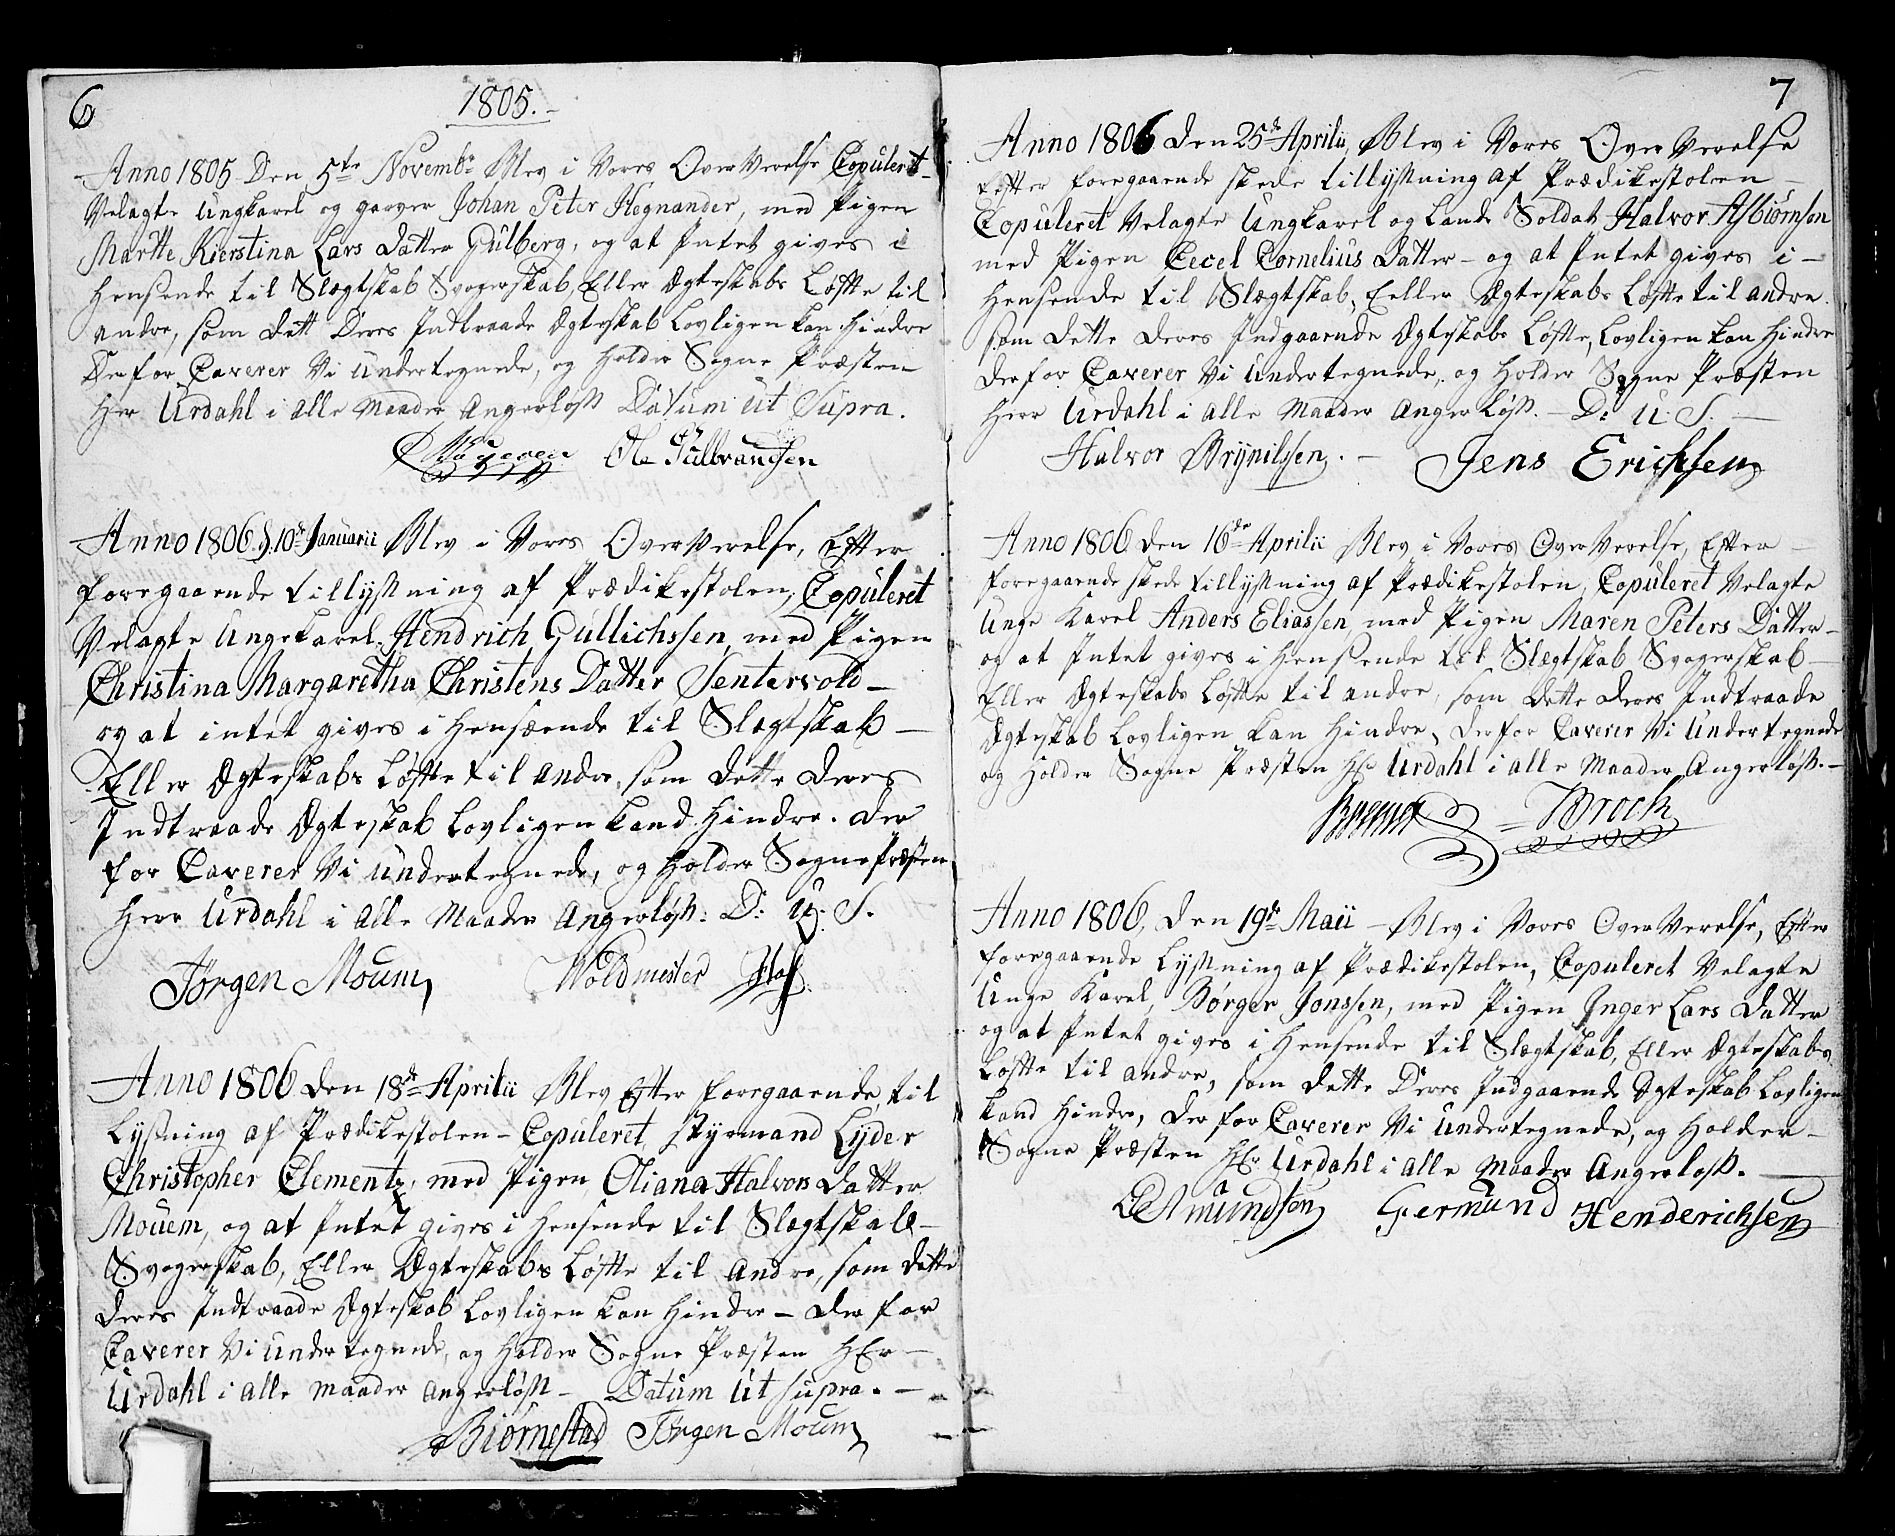 6
1805.
Anno 1805 Den 5te Novembr Blev i Vores OverVerelse Copuleret
Velagte Ungkarel og garver Johan Peter Hegnander, med Pigen
Martte Kierstina Lars Datter Gulberg, og at Intet gives i
Hensende til Slægtskab Svogerskab, Eller Ægteskabs Løfte til
andre, som dett Deres Indtraade Ægteskab Lovligen kan Hindre
Derfor Caverer Vi Undertegnede, og Holder Sogne Præsten
Her Urdahl i alle Maader Angerløss Datum ut Supra.
Ole Gulbrandsen
Anno 1806 d. 10de Januarii Blev i Vores OverVerelse, Efter
foregaaende tillysning af Prædikestolen, Copuleret
Velagte Ungekarel Hendrich Gullichssen, med Pigen
Christina Margaretha Christens Datter Sentervold
og at intet gives i Hensæende til Slægtskab
Eller Ægteskabs Løfte til andre, som dette deres
Indtraade Ægteskab Lovligen kand Hindre. der
for Caverer Vi undertegnede, og Holder Sognepræsten
Herr Urdahl i Alle Maader Angerløss: D: U: S.
Jørgen Moum Woldmester
Anno 1806 den 18de Aprilii Blev Efter foregaaende til
Lysning af Prædikestolen - Copuleret Styrmand Lyder
Christopher Clementz, med Pigen Oliana Halvors Datter
Mouem, og at Intet gives i Hensende til Slægtskab -
Svogerskab, Eller Ægteskabs Løfte til Andre, som dette
deres Indtraade Ægteskab Lovligen kan Hindre - der for
Caverer Vi undertegnede, og Holder Sogne Præsten HEr -
Urdahl i alle maader angerløss - Datum Ut supra. -
Biørnestad Jørgen Moum
7
Anno 1806 den 25de Aprilii, Blev i Vores OverVerelse
Efter foregaaende skede tillysning af Prædikestolen -
Copuleret Velagte Ungkarel og Lande Soldat Halvor Asbiørnson
med Pigen Cecel Cornelius Datter - og at Intet gives i -
Hensende til Slægtskab, Eeller Ægteskabs Løfte til andre.
som dette deres Indgaaende Ægteskabs Løfte, Lovligen kan Hindre
derfor Caverer Vi Undertegnede, og Holder Sogne Præsten
Herr Urdahl i alle Maader Angerløss. - D: U: S. -
Halvor Brynilssen. - Jens Erichsen
Anno 1806 den 16de Aprilii Blev i Vores OverVerelse, Efter -
foregaaende skede tillysning af Prædikestolen, Copuleret Velagte
Unge Karel Anders Eliassen med Pigen Maren Peters Datter -
og at Intet gives i Hensende til Slægtskab Svogerskab -
Eller Ægteskabs Løfte til andre, som dette deres Indtraade
Ægteskab Lovligen kan Hindre, derfor Caverer Vi Undertegnede
og Holder Sogne Præsten HEr Urdahl i alle Maader Angerløss. -
Broch
Anno 1806, den 19de Maii - Blev i Vores OverVerelse, Efter
foregaaende Lysning af Prædikestolen, Copuleret Velagte
Unge Karel, Børger Jonssen, med Pigen Inger Lars Datter
og at Intet gives i Hensende til Slægtskab, Eller Ægteskabs
Løfte til andre, som dette Deres Indgaaende Ægteskab Lovligen
kand Hindre, der for Caverer Vi Undertegnede, og Holder -
Sogne Præsten HEr Urdahl i alle Maader Angerløss. -
Amundson Germund Henderichsen